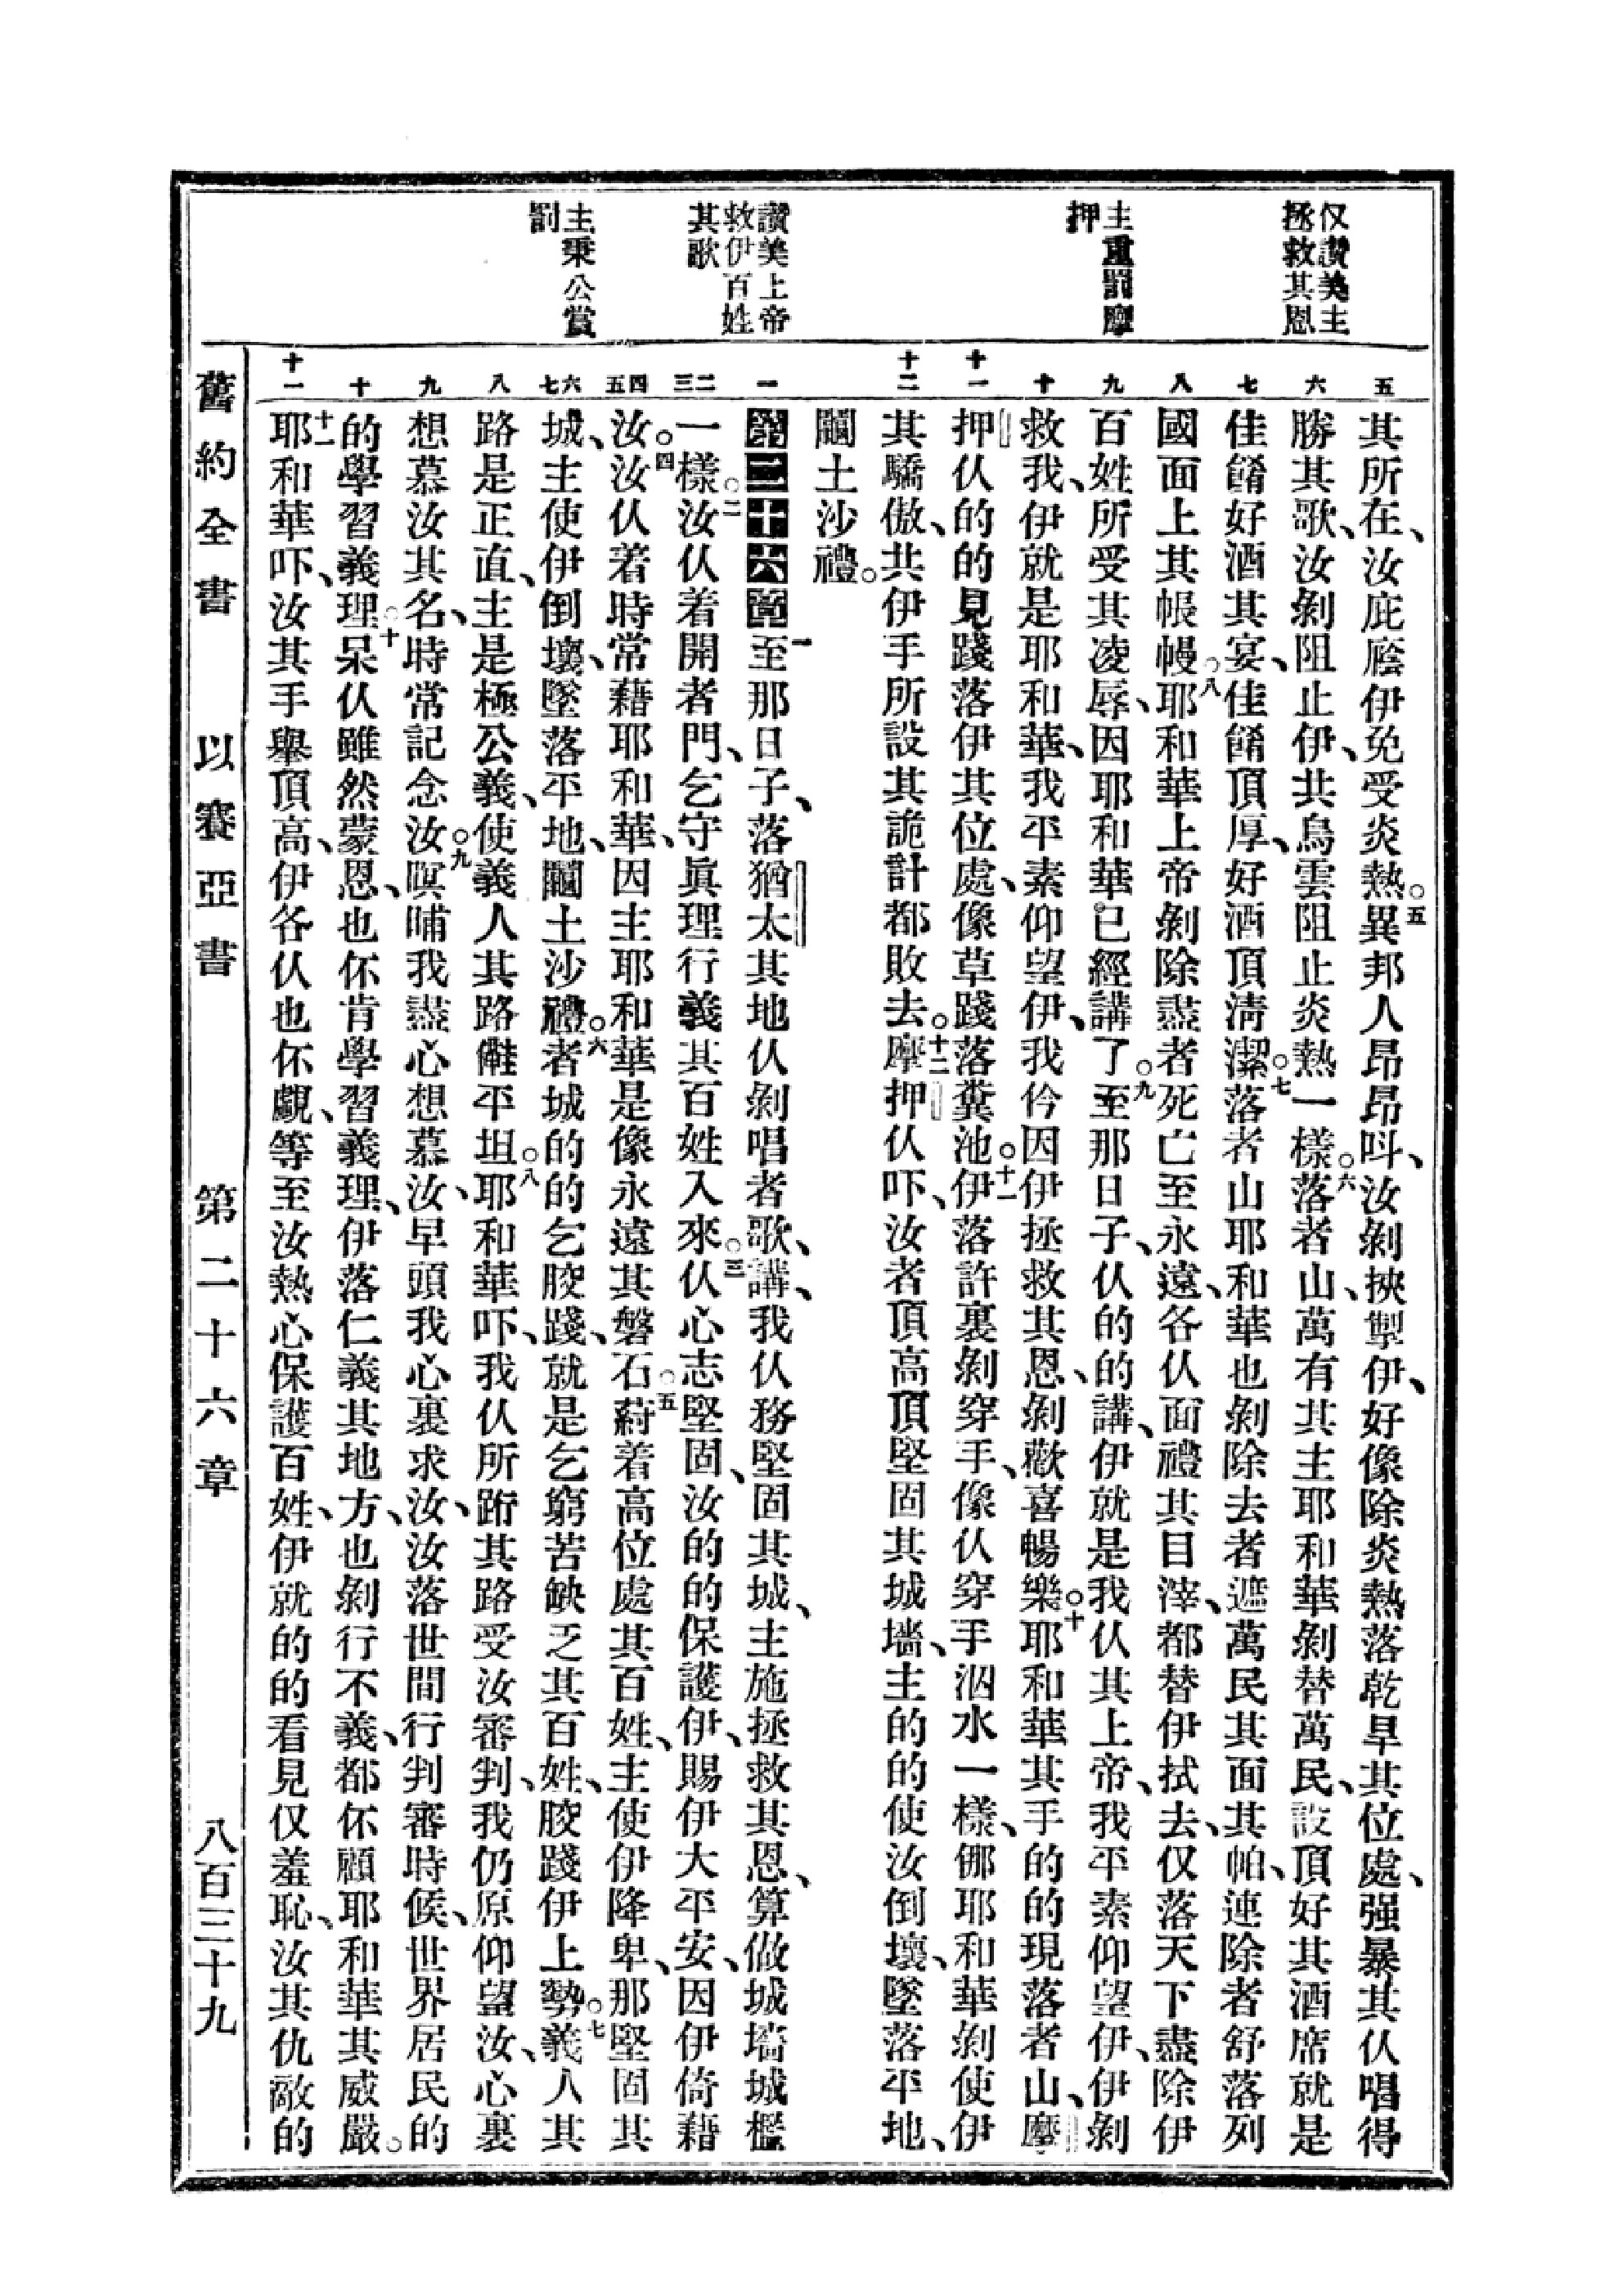 仅讚美主
拯救其恩
主重罰摩
押
讚美上帝
救伊百姓
其歌
主秉公賞
罰
五
六
七
八
九
十
十一
十二
一
二三
四五
六七
八
九
十
十一
其所在、汝庇廕伊免受炎熱。五異邦人昂昂呌、汝剝挾掣伊、好像除炎熱落乾旱其位處、强暴其仈唱得
勝其歌、汝剝阻止伊、共烏雲阻止炎熱一樣。六落者山、萬有其主耶和華剝替萬民、設頂好其酒席就是
佳餚好酒其宴、佳餚頂厚、好酒頂淸潔。七落者山耶和華也剝除去者遮萬民其面其帕、連除者舒落列
國面上其帳幔。八耶和華上帝剝除盡者死亡至永遠、各仈面禮其目滓、都替伊拭去、仅落天下盡除伊
百姓所受其凌辱、因耶和華已經講了。九至那日子、仈的的講、伊就是我仈其上帝、我平素仰望伊、伊剝
救我、伊就是耶和華、我平素仰望伊、我仱因伊拯救其恩、剝歡喜暢樂。十耶和華其手的的現落者山、摩
押仈的的見踐落伊其位處、像草踐落糞池。十一伊落許裏剝穿手、像仈穿手泅水一樣、倻耶和華剝使伊
其驕傲、共伊手所設其詭計都敗去。十二摩押仈吓、汝者頂高頂堅固其城墻、主的的使汝倒壞、墜落平地、
圞土沙禮。
第二十六章一至那日子、落猶太其地仈剝唱者歌、講、我仈務堅固其城、主施拯救其恩、算做城墻城檻
一樣。二汝仈着開者門、乞守眞理行義其百姓入來。三仈心志堅固、汝的的保護伊、賜伊大平安、因伊倚藉
汝。四汝仈着時常藉耶和華、因主耶和華是像永遠其磐石。五葑着高位處其百姓、主使伊降卑、那堅固其
城、主使伊倒壞、墜落平地、圞土沙禮。六者城的的乞骹踐、就是乞窮苦缺乏其百姓、骹踐伊上勢。七義人其
路是正直、主是極公義、使義人其路儺平坦。八耶和華吓、我仈所跔其路受汝審判、我仍原仰望汝、心裏
想慕汝其名、時常記念汝。九暝晡我盡心想慕汝、早頭我心裏求汝、汝落世間行判審時候、世界居民的
的學習義理。十呆仈雖然蒙恩、也伓肯學習義理、伊落仁義其地方、也剝行不義、都伓顧耶和華其威嚴。
十一耶和華吓、汝其手舉頂高、伊各仈也伓覷、等至汝熱心保護百姓、伊就的的看見仅羞恥、汝其仇敵的
舊約全書　以賽亞書　第二十六章　八百三十九